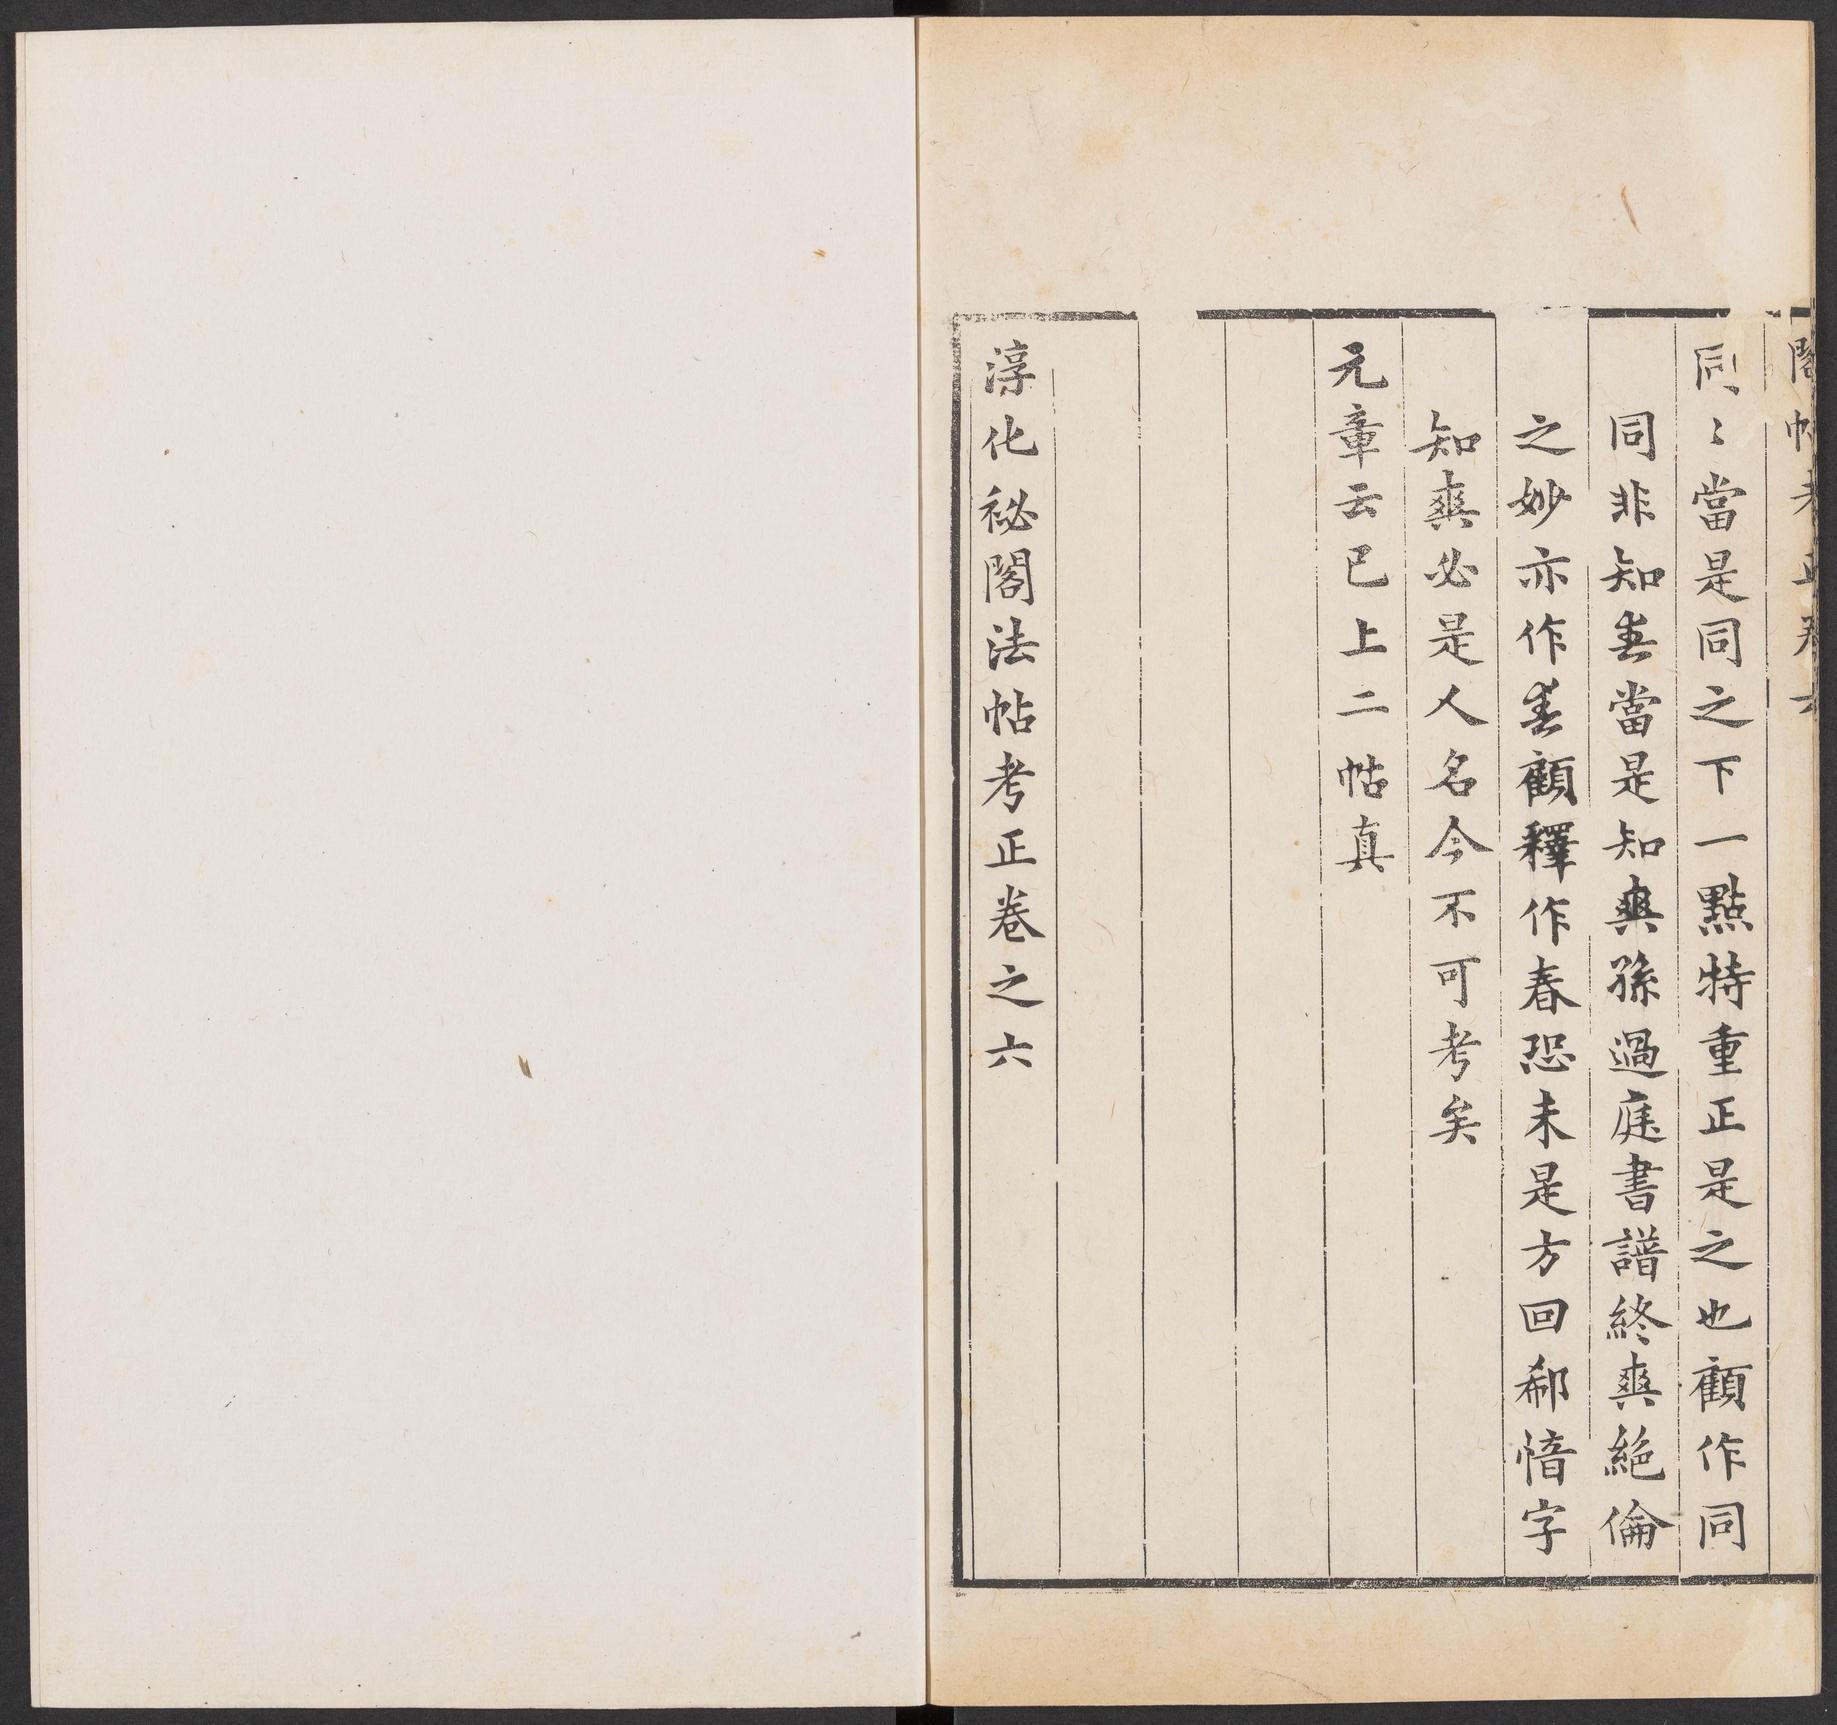 閣帖考正卷六
同〻當是同之下一點特重正是之也顧作同
同非知當是知爽孫過庭書譜終爽絕倫
之妙亦作顧釋作春恐未是方回郗愔字
知爽必是人名今不可考矣
元章云已上二帖真
淳化祕閣法帖考正卷之六